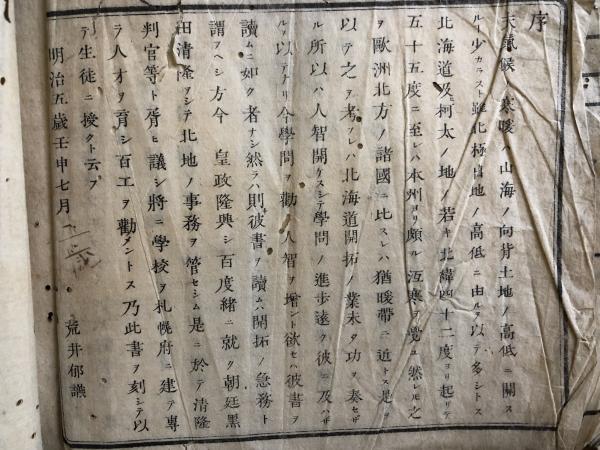 序
天氣候ノ寒暖ハ山海ノ向背土地ノ高低ニ關ス
ル少カラスト雖北極出地ノ高低ニ由ルヲ以テ多シトス
北海道及ヒ柯太ノ地ノ若キ北緯四十二度ヨリ起リテ
五十五度ニ至レハ本州ヨリ頗ル沍寒ヲ覺ユ然レモ之
ヲ歐洲北方ノ諸國ニ比スレハ猶暖帶ニ近トス是ヲ
以テ之ヲ考フレハ北海道開拓ノ業未タ功ヲ奏セザ
ル所以ハ人智開ケスシテ學問ノ進步遠ク彼ニ及ハザ
ルヲ以テナリ今學問ヲ勸ノ人智ヲ增ント欲セハ彼書ヲ
讀ムニ如ク者ナシ然ラハ則彼書ヲ讀ムハ開拓ノ急務ト
謂フヘシ方今 皇政隆興シ百度緒ニ就ク朝廷黑
田清隆ヲシテ北地ノ事務ヲ管セシム是ニ於テ清隆
判官等ト胥ヒ議シ將ニ學校ヲ札幌府ニ建テ專
ラ人才ヲ育シ百工ヲ勸メントス乃此書ヲ刻シテ以
テ生徒ニ授クト云フ
明治五歲壬申七月
荒井郁議